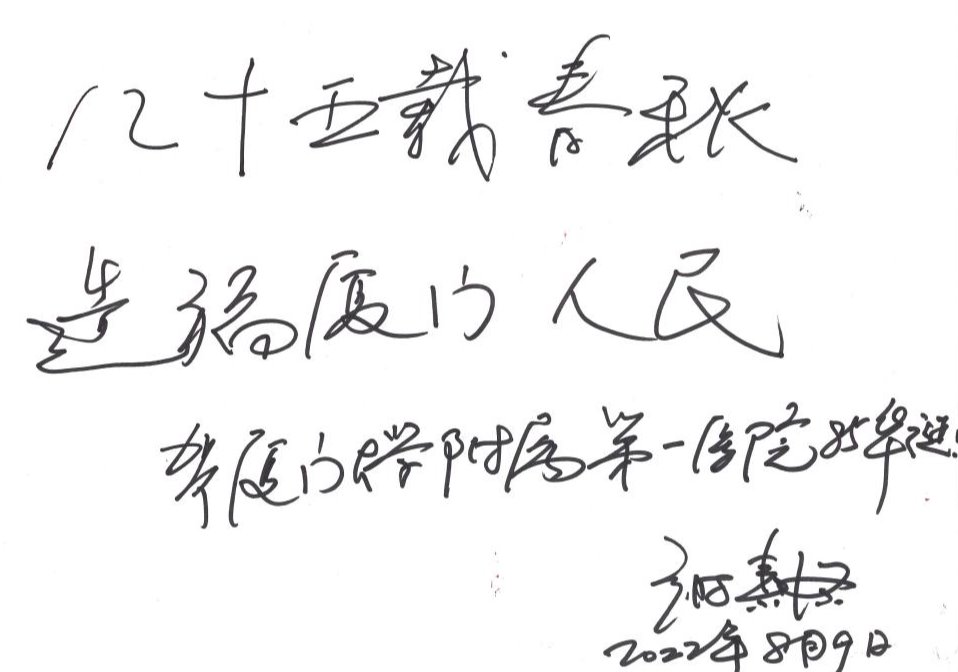 八十五载春秋
造福厦门人民
贺厦门大学附属第一医院85华诞!
2022年8月9日